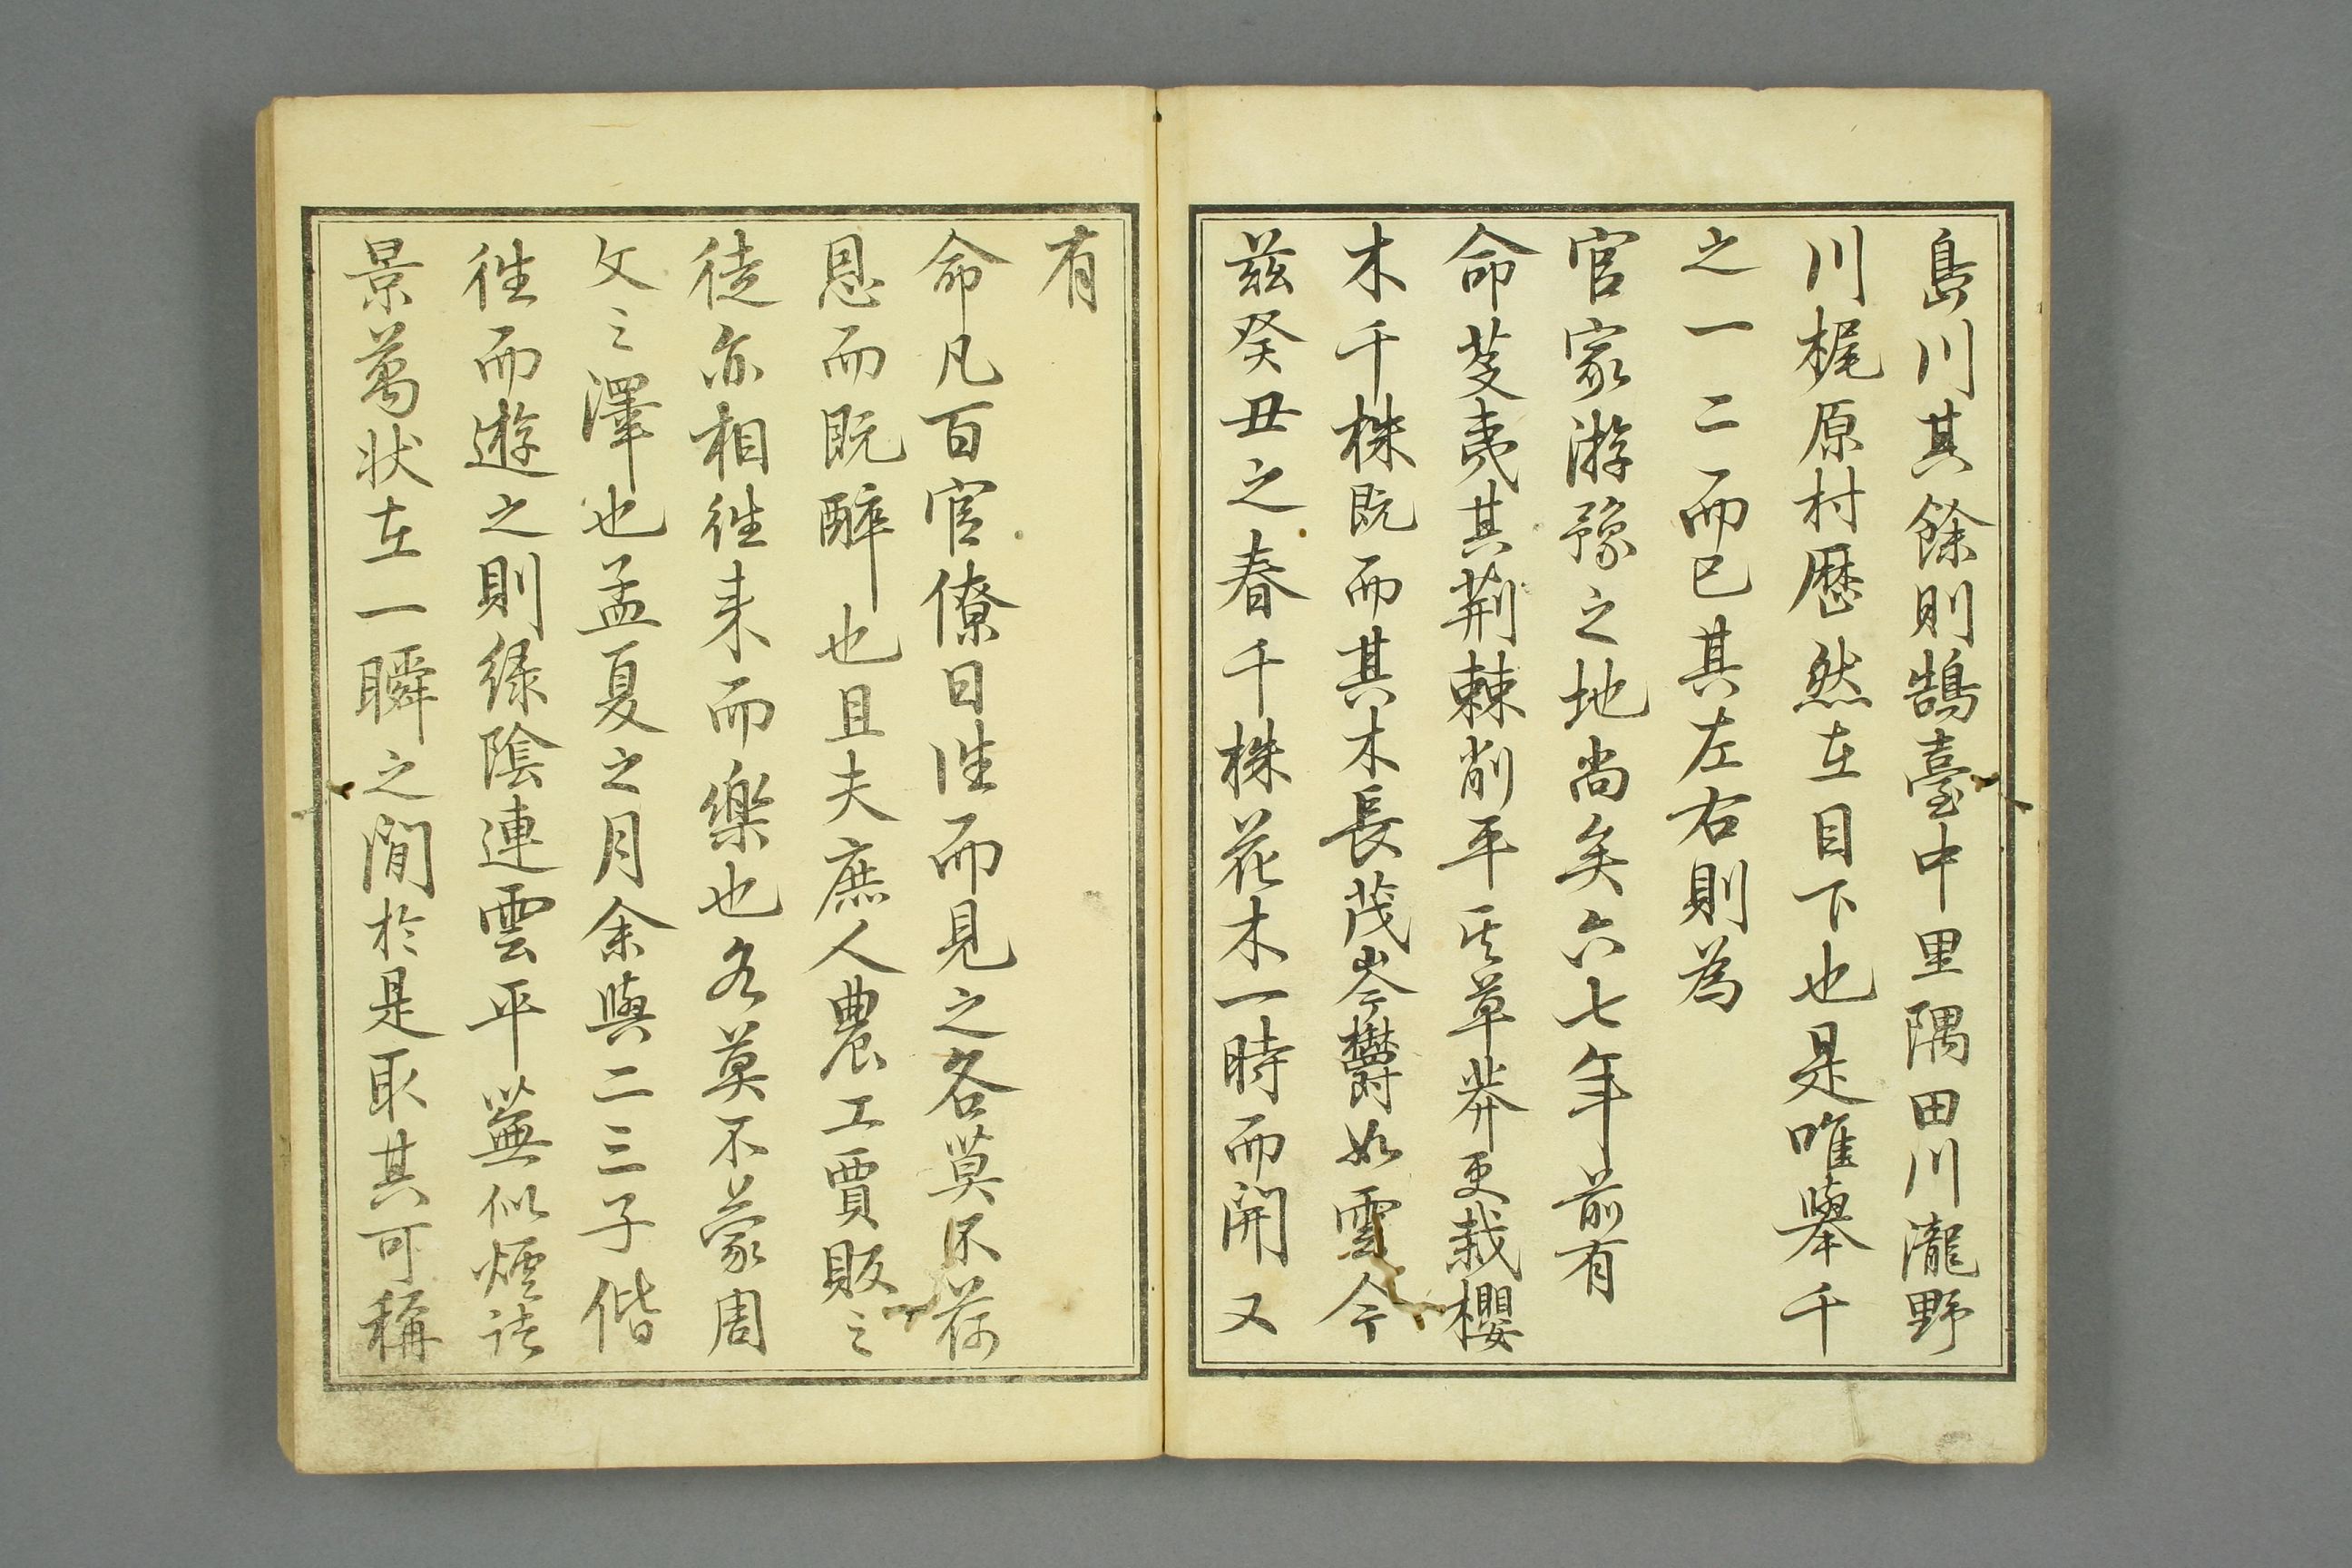 島川其餘則鵠臺中里隅田川瀧野
川梶原村歷然在目下也是唯舉千
之一二而已其左右則為
官家游豫之地尚矣六七年前有
命芟夷其荆棘削平其草莽更栽櫻
木千株既而其木長茂岑欝如雲今
茲癸丑之春千株花木一時而開又
有
命凡百官僚日往而見之各莫不荷
恩而既醉也且夫庶人農工賈販之
徒亦相往来而樂也各莫不蒙周
文之澤也孟夏之月余與二三子偕
往而遊之則緑陰連雲平蕪似煙諸
景萬狀在一瞬之間於是取其可稱